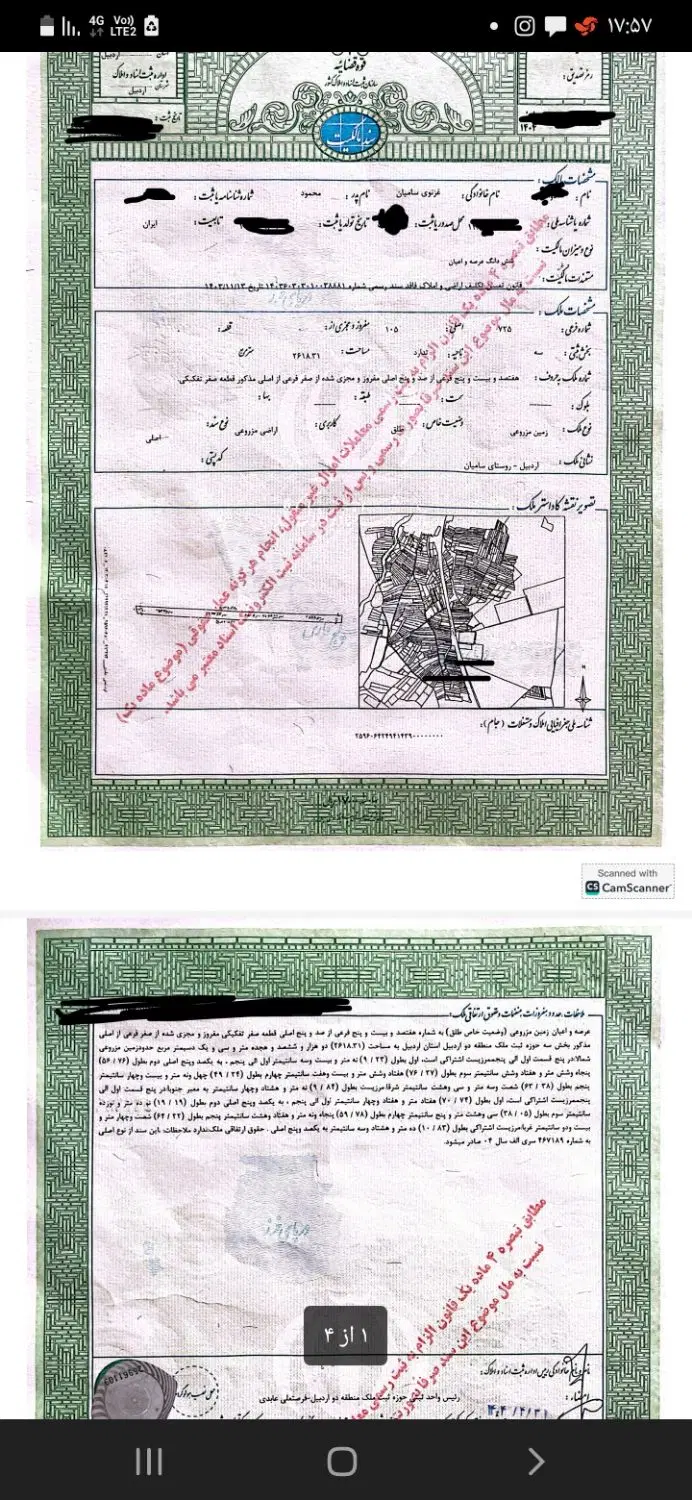 4G Vo)) LTE2
۱۷:۵۷
قوه قضائیه
سازمان ثبت اسناد و املاک کشور
اداره ثبت اسناد و املاک
اردبیل
رمز تصدیق :
تاریخ ثبت :
سند مالکیت
مشخصات مالک :
نام : نام خانوادگی : غزنوی سامیان نام پدر : محمود شماره شناسنامه یا ثبت :
شماره یا شناسه ملی : محل صدور یا ثبت : تاریخ تولد یا ثبت : تابعیت : ایران
نوع و میزان مالکیت : شش دانگ عرصه و اعیان
مستندات مالکیت : قانون تعیین تکلیف اراضی و املاک فاقد سند رسمی شماره ۱۴۰۳۶۰۳۰۳۰۱۰۰۳۸۸۸۱ تاریخ ۱۴۰۳/۱۱/۱۳
مشخصات ملک :
شماره فرعی : ۷۲۵ اصلی : ۱۰۵ مفروز و مجزی از : قطعه : ۰
بخش ثبتی : سه ناحیه : ندارد مساحت : ۲۶۱۸.۳۱ متر مربع
شماره ملک به حروف : هفتصد و بیست و پنج فرعی از صد و پنج اصلی مفروز و مجزی شده از صفر فرعی از اصلی مذکور قطعه صفر تفکیکی
بلوک : سمت : طبقه : بها :
نوع ملک : زمین مزروعی وضعیت خاص : طلق کاربری : اراضی مزروعی نوع سند : اصلی
نشانی ملک : اردبیل - روستای سامیان کد پستی :
تصویر نقشه کاداستر ملک :
شناسه ملی جغرافیایی املاک و مستغلات (جام) :
مطابق تبصره ۴ ماده یک قانون الزام به ثبت رسمی معاملات اموال غیر منقول، انجام هرگونه عمل حقوقی (موضوع ماده یک)
نسبت به مال موضوع این سند صرفا بصورت رسمی و پس از ثبت در سامانه ثبت الکترونیک اسناد معتبر می باشد.
Scanned with
CS CamScanner
ملاحظات، حدود و مفروزات، منضمات و حقوق ارتفاقی ملک :
عرصه و اعیان زمین مزروعی (وضعیت خاص طلق) به شماره هفتصد و بیست و پنج فرعی از صد و پنج اصلی قطعه صفر تفکیکی مفروز و مجزی شده از صفر فرعی از اصلی
مذکور بخش سه حوزه ثبت ملک منطقه دو اردبیل استان اردبیل به مساحت (۲۶۱۸.۳۱) دو هزار و ششصد و هجده متر و سی و یک دسیمتر مربع حدود:زمین مزروعی
شمالا:در پنج قسمت اول الی پنجم،مرزیست اشتراکی است، اول بطول (۲۳ / ۹) نه متر و بیست وسه سانتیمتر اول الی پنجم ، به یکصد وپنج اصلی دوم بطول (۷۶ / ۵۶)
پنجاه وشش متر و هفتاد وشش سانتیمتر سوم بطول (۲۷ / ۷۶) هفتاد وشش متر و بیست وهفت سانتیمتر چهارم بطول (۲۴ / ۴۹) چهل ونه متر و بیست وچهار سانتیمتر
پنجم بطول (۳۸ / ۶۳) شصت وسه متر و سی وهشت سانتیمتر شرقا:مرزیست بطول (۸۴ / ۹) نه متر و هشتاد وچهار سانتیمتر به ممیر جنوبا:در پنج قسمت اول الی
پنجم،مرزیست اشتراکی است، اول بطول (۷۴ / ۷۰) هفتاد متر و هفتاد وچهار سانتیمتر اول الی پنجم ، به یکصد وپنج اصلی دوم بطول (۱۹ / ۱۹) نوزده متر و نوزده
سانتیمتر سوم بطول (۰۵ / ۳۸) سی وهشت متر و پنج سانتیمتر چهارم بطول (۷۸ / ۵۹) پنجاه ونه متر و هفتاد وهشت سانتیمتر پنجم بطول (۲۲ / ۶۴) شصت وچهار متر و
بیست ودو سانتیمتر غربا:مرزیست اشتراکی بطول (۸۳ / ۱۰) ده متر و هشتاد وسه سانتیمتر به یکصد وپنج اصلی . حقوق ارتفاقی ملک:ندارد ملاحظات: این سند از نوع اصلی
به شماره ۴۶۷۱۸۹ سری الف سال ۰۴ صادر میشود.
مطابق تبصره ۴ ماده یک قانون الزام به ثبت رسمی
نسبت به مال موضوع این سند صرفا بصورت
۱ از ۴
نام و نام خانوادگی رییس اداره ثبت اسناد و املاک :
رئیس واحد ثبتی حوزه ثبت ملک منطقه دو اردبیل-فرضعلی عابدی
امضاء :